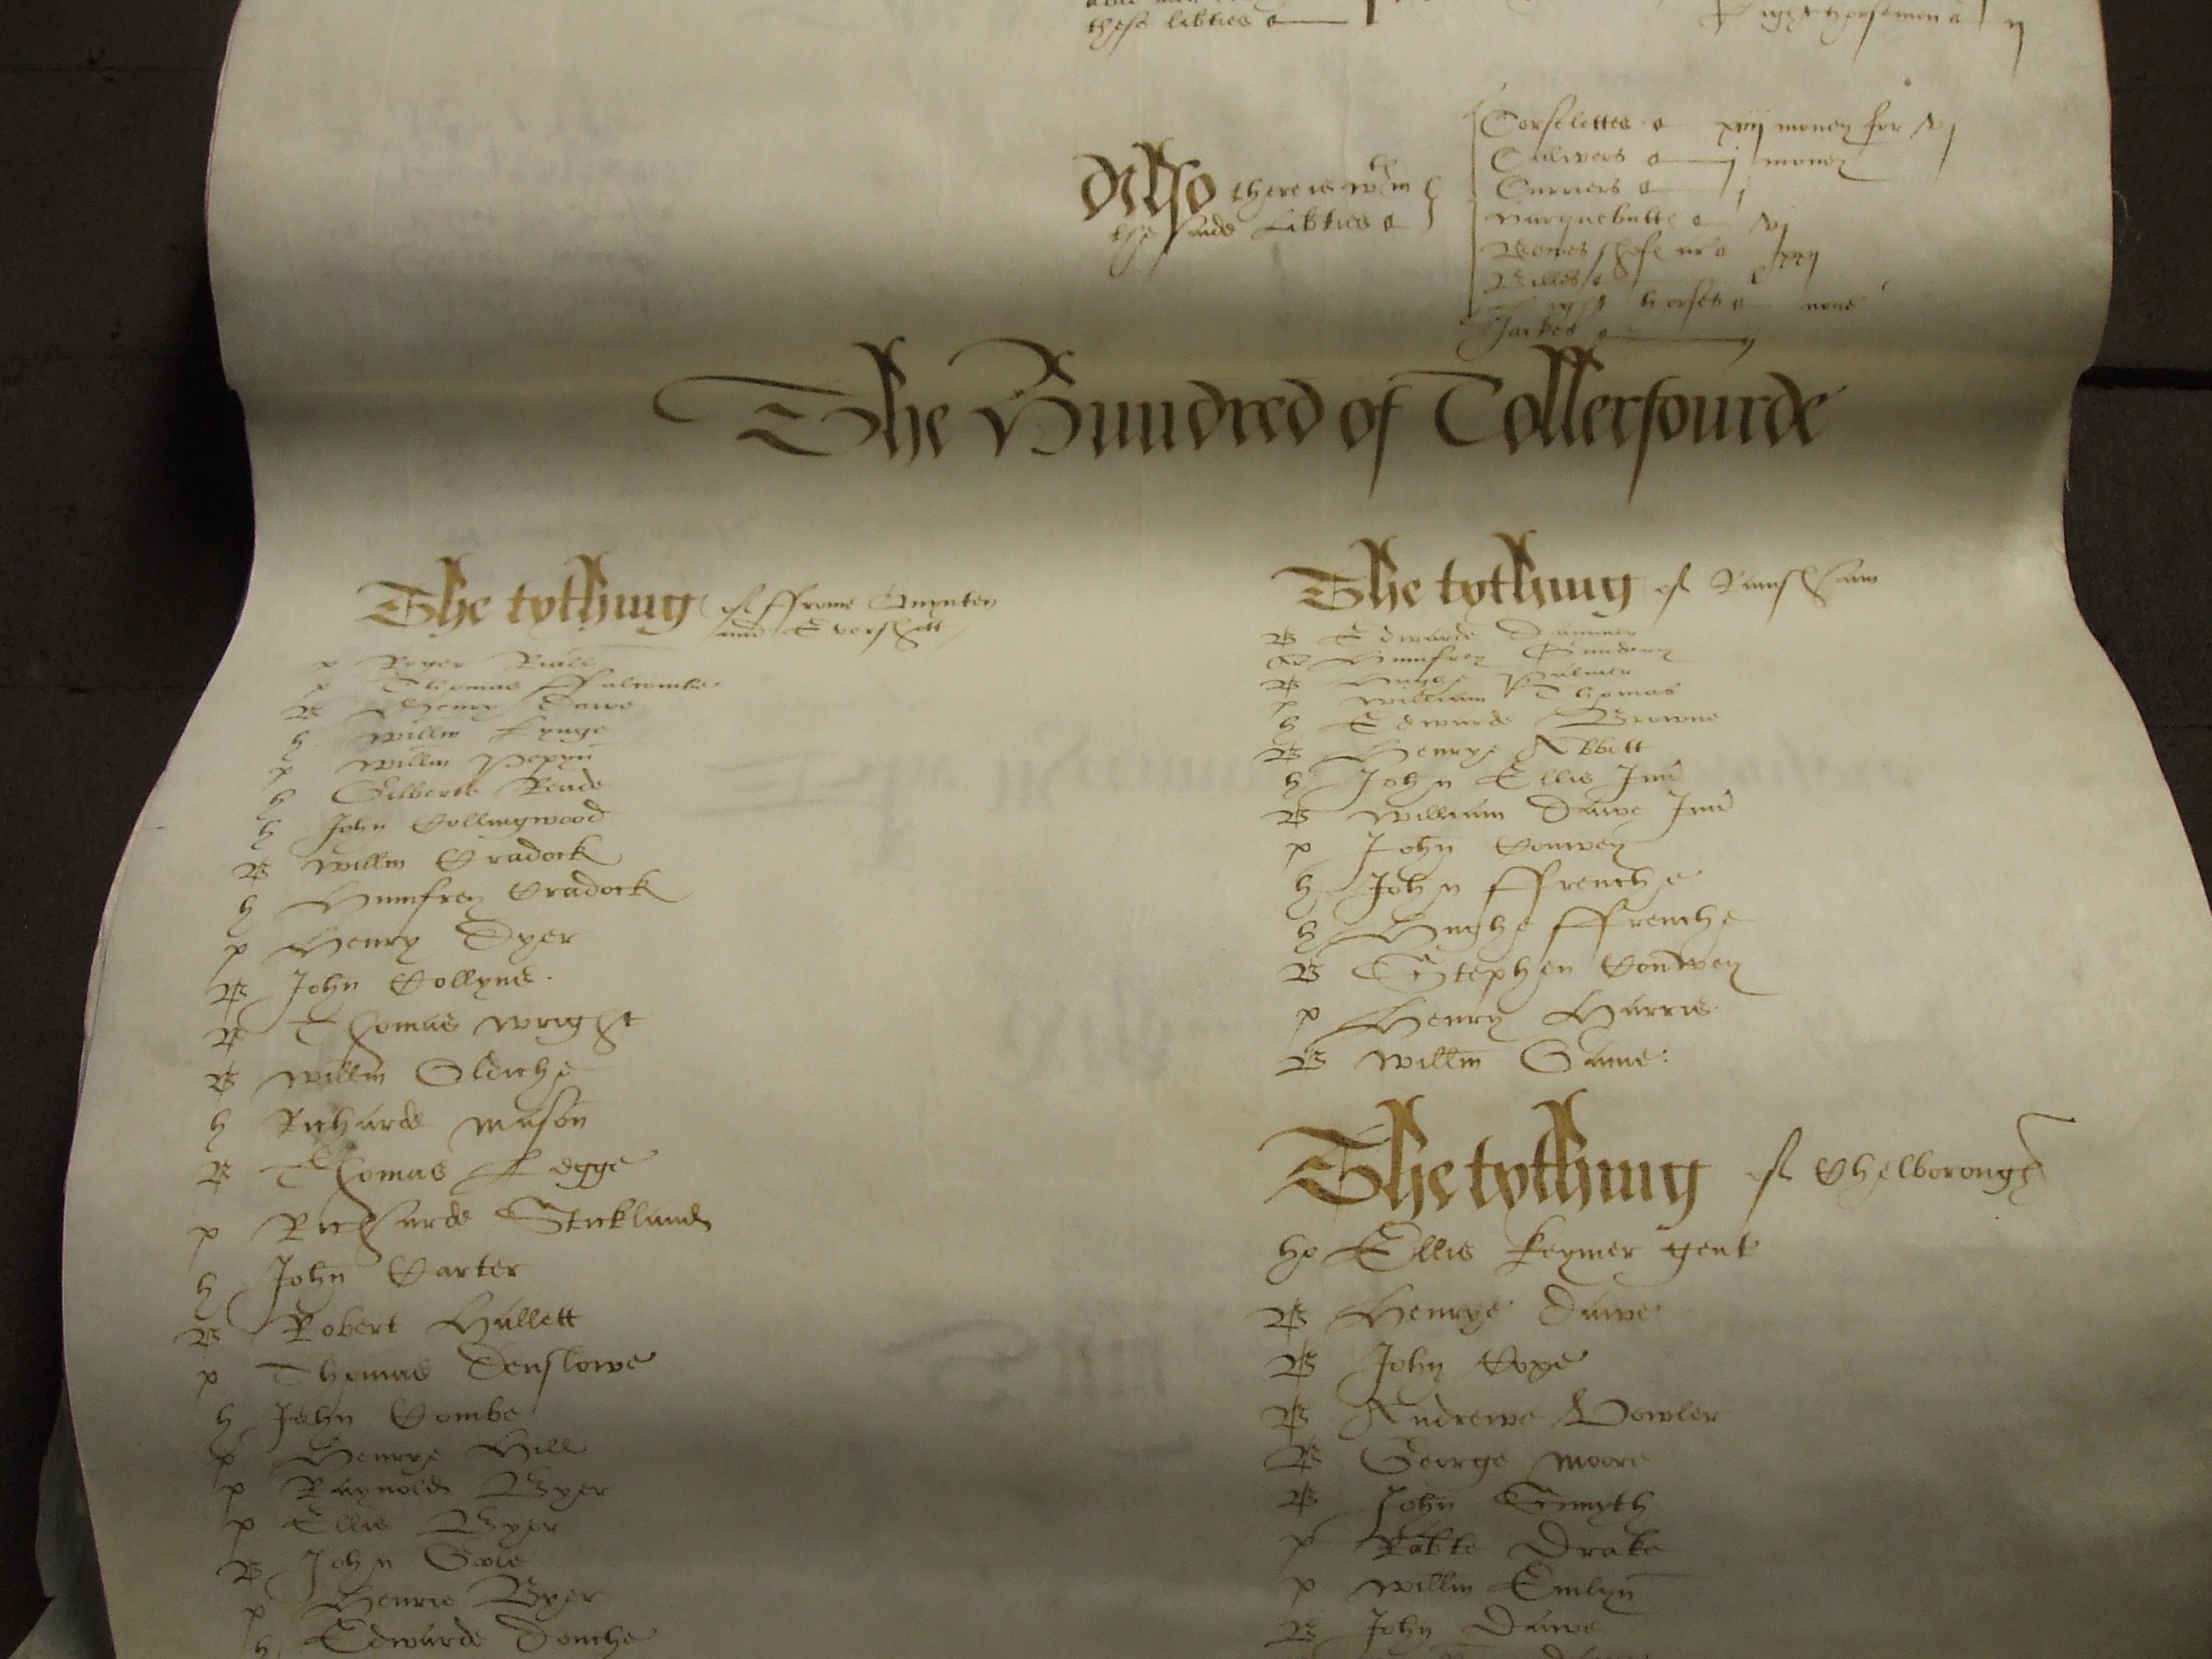 these libties
light horsemen ij
Also there is wthin
the saide Libties
Corselettes xiiij money for vj
Calivers j money
Curriers j
Harquebutte vj
Bowes shefe ar
Billes
Light horses none
Jackes ij
The Hundred of Tollerfourde
The tything of ffrome Quynten
and Evershott
p Roger Riall
p Thomas ffulcombe
B Henry Dawe
h Willm Kynge
p Willm Pepyn
h Gilberte Reade
h John Collingwood
B Willm Cradock
h Humfrey Cradock
p Henry Dyer
B John Collyns
B Thomas Wright
B Willm Oldiche
h Richarde Mason
B Thomas Legge
p Richarde Sticklande
h John Carter
B Robert Hallett
p Thomas Denslowe
h John Combe
p Henrye Hill
p Raynolde Byer
p Ellis Byer
B John Cole
p Henrie Byer
h Edwarde Denche
The tything of Ramsham
B Edwarde Dammer
Ar Humfrey Gundery
B Hughe Palmer
p William Thomas
h Edwarde Browne
B Henrye Abbott
h John Ellis Jun
B William Dawe Jun
p John Conwey
h John ffrenche
h Hughe ffrenche
B Stephen Conwey
p Henry Harris
B Willm Same
The tything of Chelborough
hp Ellis Keymer gent
B Henrye Dawe
B John Cope
B Andrewe Vowler
B George Moore
B John Smyth
p Robte Drake
p Willm Emlyn
B John Dawe